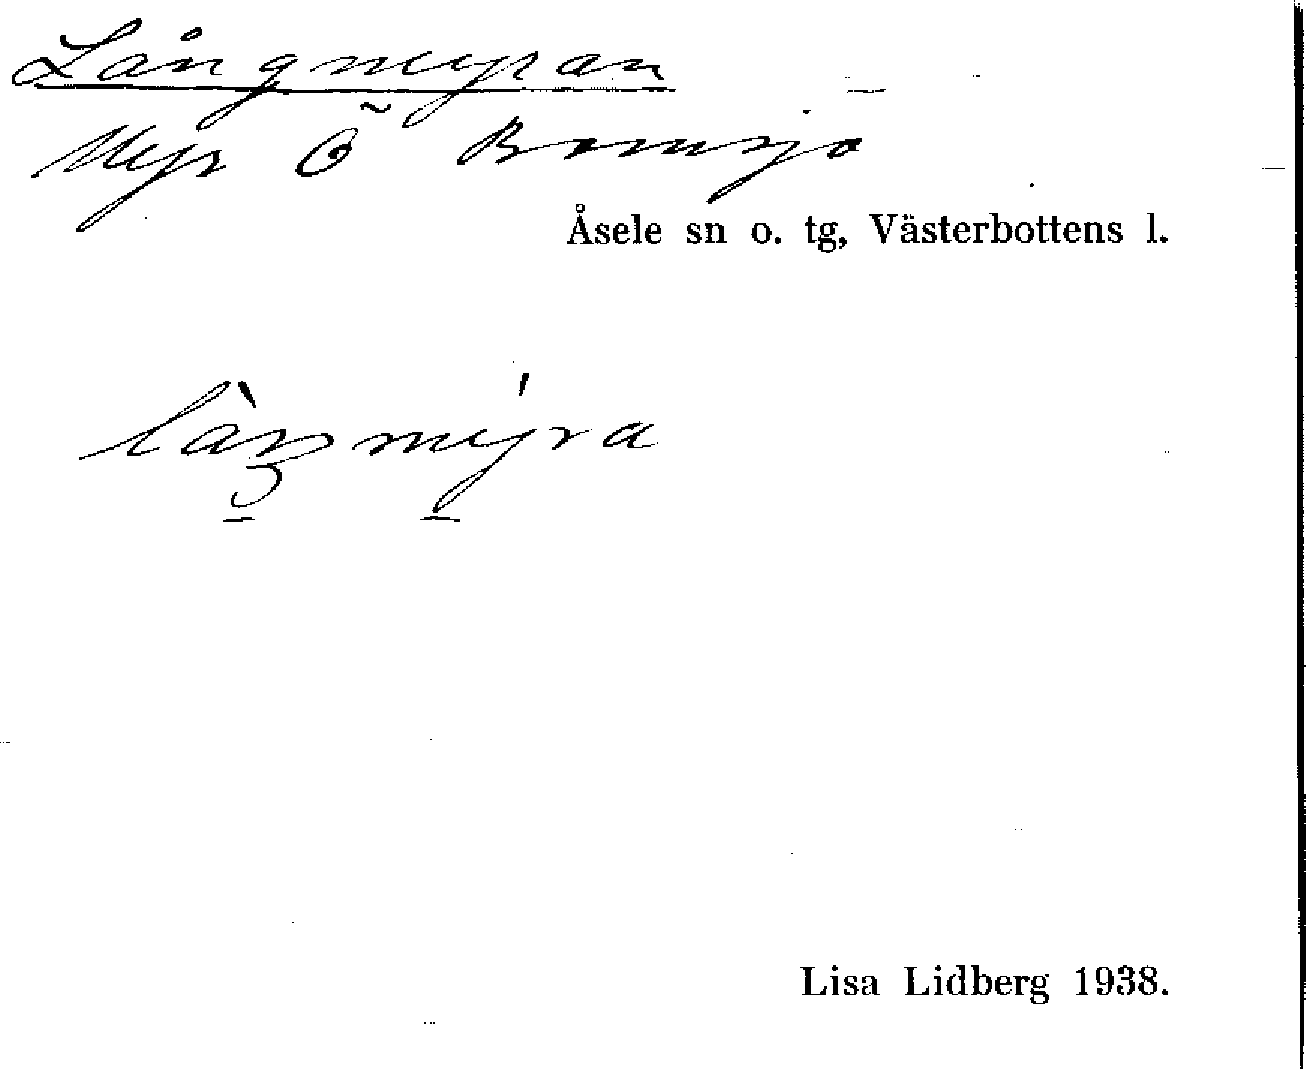 Långmyran
Myr Ö Bomsjö
Åsele sn o. tg, Västerbottens l.
Lisa Lidberg 1938.